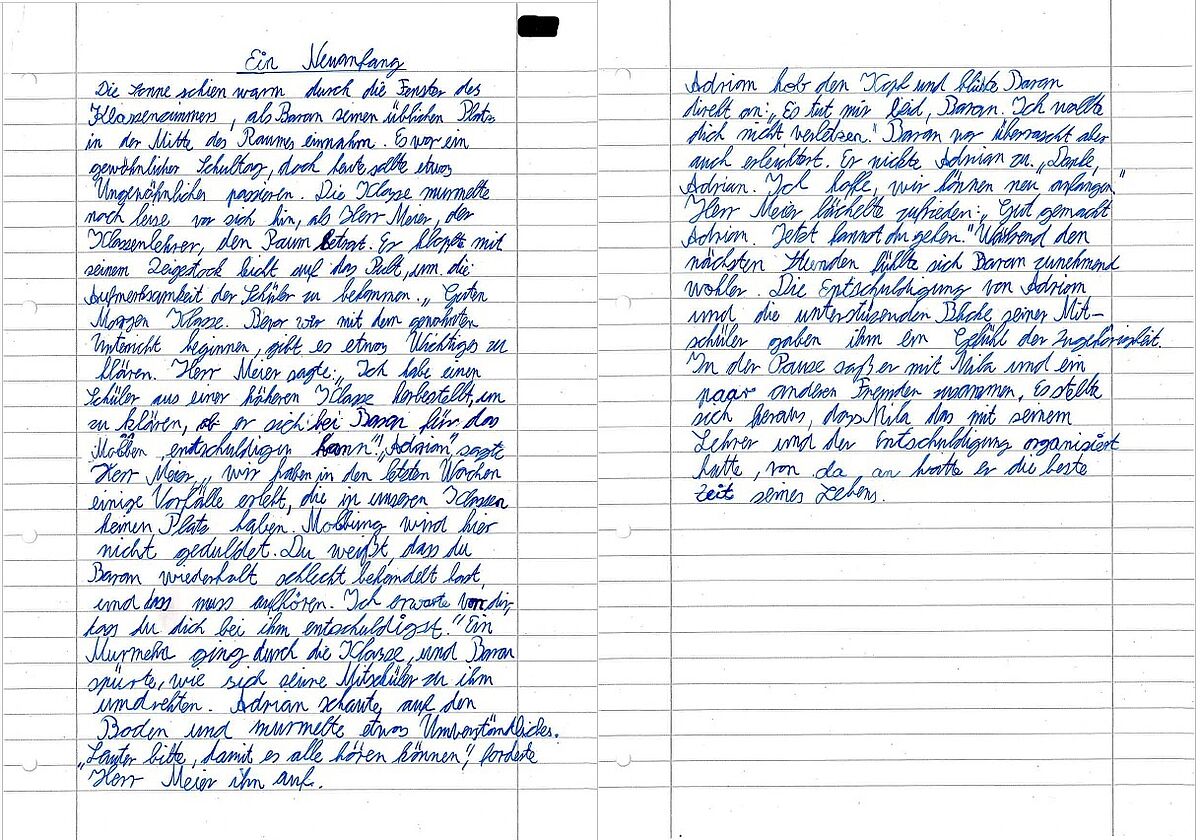 Ein Neuanfang
Die Sonne schien warm durch die Fenster des
Klassenzimmers, als Baran seinen üblichen Platz
in der Mitte des Raumes einnahm. Es war ein
gewöhnlicher Schultag, doch heute sollte etwas
Ungewöhnliches passieren. Die Klasse murmelte
noch leise vor sich hin, als Herr Meier, der
Klassenlehrer, den Raum betrat. Er klopfte mit
seinem Zeigestock leicht auf das Pult, um die
Aufmerksamkeit der Schüler zu bekommen. „Guten
Morgen Klasse. Bevor wir mit dem gewohnten
Unterricht beginnen, gibt es etwas Wichtiges zu
klären. Herr Meier sagte: „Ich habe einen
Schüler aus einer höheren Klasse herbestellt, um
zu klären, ob er sich bei Baran für das
Mobben entschuldigen kann“! „Adrian“, sagte
Herr Meier „, wir haben in den letzten Wochen
einige Vorfälle erlebt, die in unseren Klassen
keinen Platz haben. Mobbing wird hier
nicht geduldet. Du weißt, dass du
Baran wiederholt schlecht behandelt hast,
und dass muss aufhören. Ich erwarte von dir,
das du dich bei ihm entschuldigst.“ Ein
Murmeln ging durch die Klasse, und Baran
spürte, wie sich seine Mitschüler zu ihm
umdrehten. Adrian schaute auf den
Boden und murmelte etwas Unverständliches.
„Lauter bitte, damit es alle hören können“, forderte
Herr Meier ihn auf.
Adrian hob den Kopf und blickte Baran
direkt an: „Es tut mir leid, Baran. Ich wollte
dich nicht verletzen.“ Baran war überrascht aber
auch erleichtert. Er nickte Adrian zu. „Danke,
Adrian. Ich hoffe, wir können neu anfangen.“
Herr Meier lächelte zufrieden: „Gut gemacht
Adrian. Jetzt kannst du gehen.“ Während den
nächsten Stunden fühlte sich Baran zunehmend
wohler. Die Entschuldigung von Adrian
und die unterstüzenden Blicke seiner Mit-
schüler gaben ihm ein Gefühl der Zugehörigkeit.
In der Pause saß er mit Mila und ein
paar anderen Fremden zusammen, Es stellte
sich heraus, dass Mila das mit seinem
Lehrer und der Entschuldigung organisiert
hatte, von da an hatte er die beste
Zeit seines Lebens.